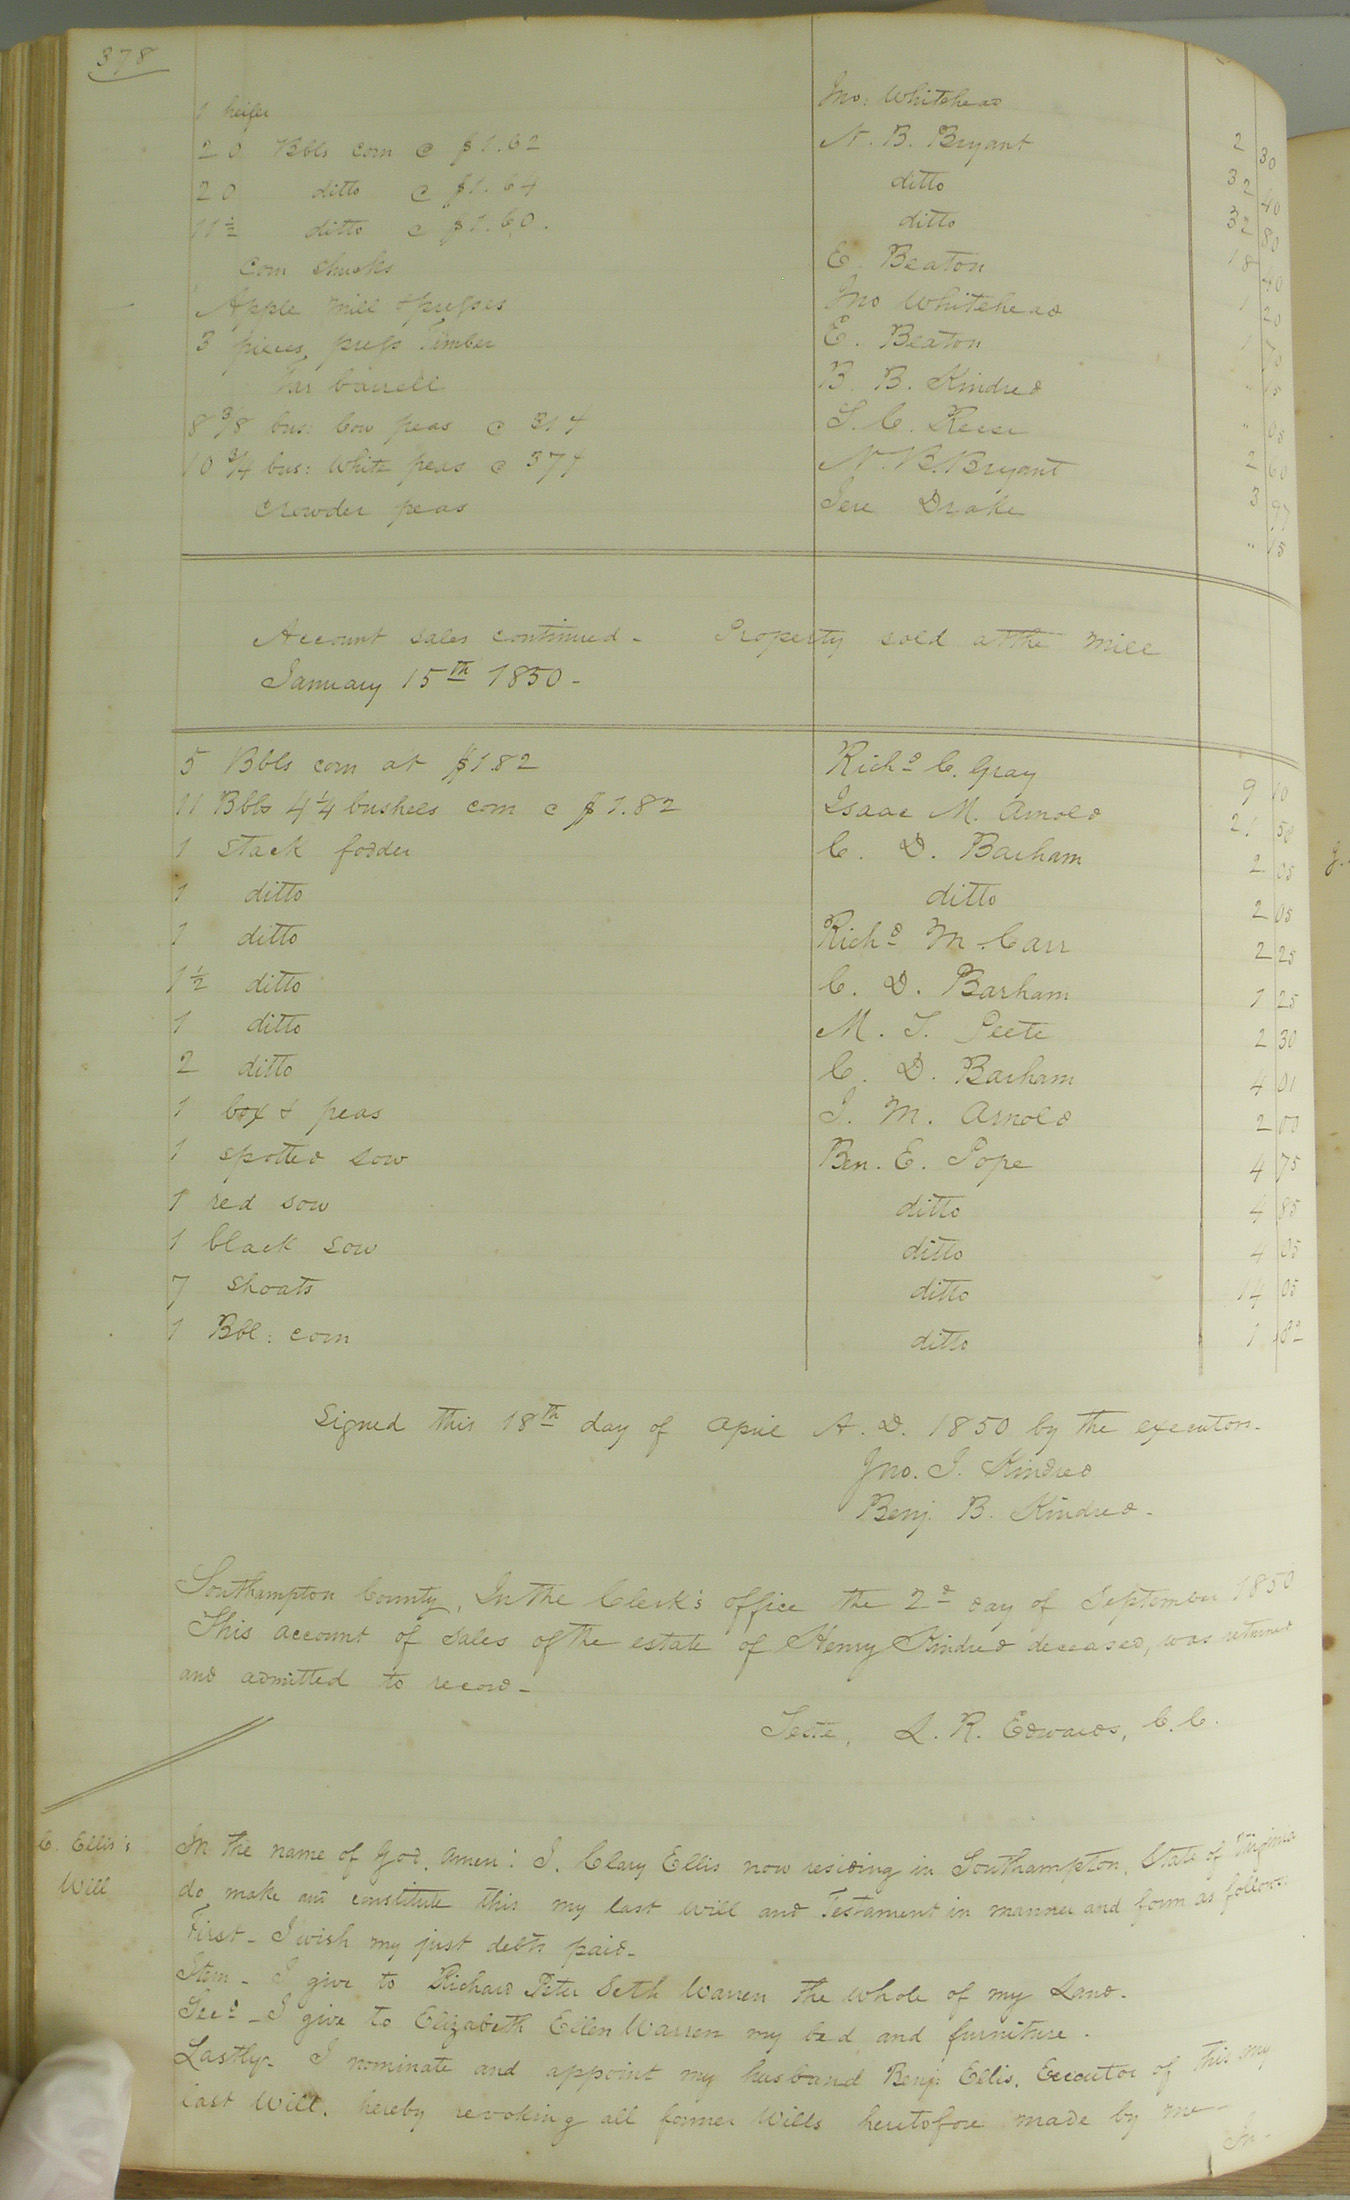 378
1 heifer Jno: Whitehead 2 30
20 Bbls corn @ $1.62 N. B. Bryant 32 40
20 ditto @ $1.64 ditto 32 80
11½ ditto @ $1.60. ditto 18 40
corn shucks E. Beaton 1 20
Apple mill & presses Jno Whitehead 1 10
3 pieces press Timber E. Beaton " 15
Tar barrell B. B. Kindred " 05
8 3/8 bus: Cow peas @ 31¢ S. C. Reese 2 60
10 3/4 bus: White peas @ 37¢ N. B. Bryant 3 97
crowder peas Jere Drake " 15
Account sales continued - Property sold at the mill
January 15th 1850 -
5 Bbls corn at $1.82 Richd C. Gray 9 10
11 Bbls 4¼ bushels corn @ $1.82 Isaac M. Arnold 21 56
1 stack fodder C. D. Barham 2 05
1 ditto ditto 2 05
1 ditto Richd M. Carr 2 25
1½ ditto C. D. Barham 1 25
1 ditto M. T. Peete 2 30
2 ditto C. D. Barham 4 01
1 box & peas I. M. Arnold 2 00
1 spotted sow Ben. E. Pope 4 75
1 red sow ditto 4 85
1 black sow ditto 4 05
7 shoats ditto 14 05
1 Bbl: corn ditto 1 82
Signed this 18th day of April A. D. 1850 by the executors.
Jno. J. Kindred
Benj. B. Kindred -
Southampton County, In the Clerk's office the 2d day of September 1850
This account of sales of the estate of Henry Kindred deceased, was returned
and admitted to record -
Teste, L. R. Edwards, C. C.
C. Ellis's
Will
In the name of God, Amen: I, Clary Ellis now residing in Southampton, State of Virginia
do make and constitute this my last will and Testament in manner and form as follows:
First - I wish my just debts paid -
Item - I give to Richard Peter Seth Warren the whole of my Land -
Secd - I give to Elizabeth Ellen Warren my bed and furniture.
Lastly - I nominate and appoint my husband Benj: Ellis, Executor of this my
last Will, hereby revoking all former Wills heretofore made by me -
In